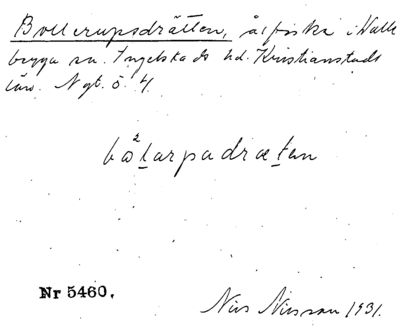 Bollerupsdrätten, ålfiske i Valle
bygga sn. Ingelstads hd. Kristianstads
län. Ngt. ö. 4
bo²larpadrætan
Nr 5460.
Nils Nilsson 1931.